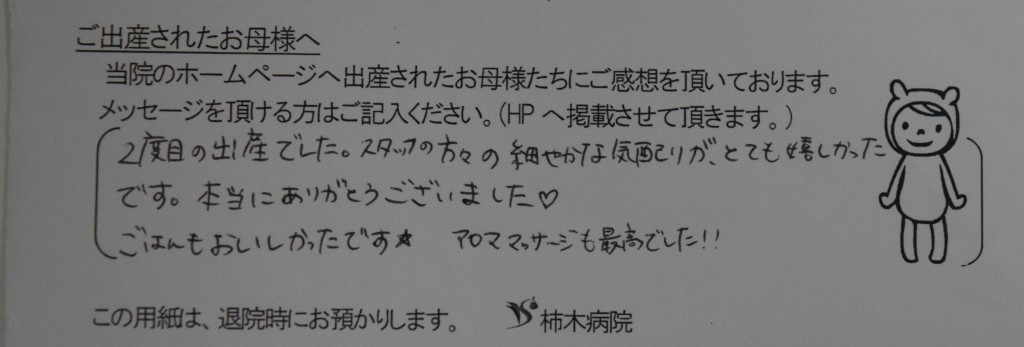 ご出産されたお母様へ
当院のホームページへ出産されたお母様たちにご感想を頂いております。
メッセージを頂ける方はご記入ください。(HP へ掲載させて頂きます。)
2度目の出産でした。スタッフの方々の細やかな気配りが、とても嬉しかった
です。本当にありがとうございました♡
ごはんもおいしかったです★ アロママッサージも最高でした!!
この用紙は、退院時にお預かりします。 柿木病院